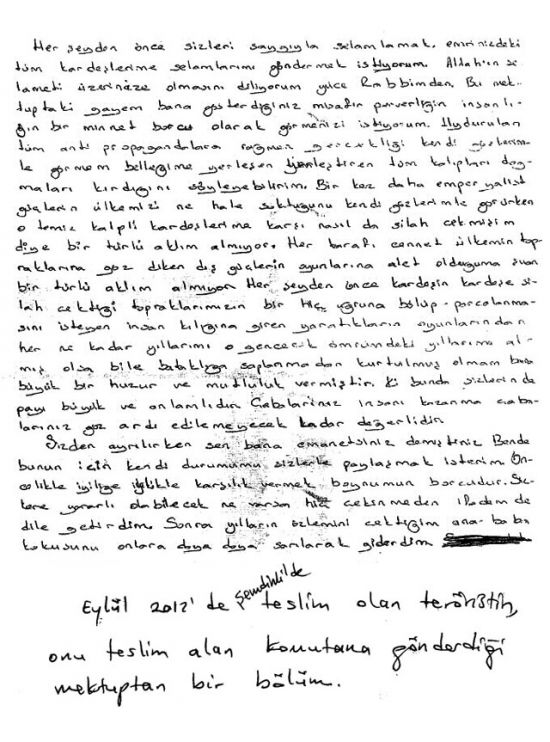 Her şeyden önce sizleri saygıyla selamlamak, emrinizdeki
tüm kardeşlerime selamlarımı göndermek istiyorum. Allah'ın se-
lameti üzerinize olmasını diliyorum yüce Rabbimden. Bu mek-
tuptaki gayem bana gösterdiğiniz misafir perverliğin insanlı-
ğın bir minnet borcu olarak görmenizi istiyorum. Uydurulan
tüm anti propagandalara rağmen gerçekliği kendi gözlerim-
le görmem belleğime yerleşen tüm kalıpları doğ-
maları kırdığını söyleyebilirim. Bir kez daha emper yalist
güçlerin ülkemizi ne hale soktuğunu kendi gözlerimle görürken
o temiz kalpli kardeşlerime karşı nasıl da silah çekmişim
diye bir türlü aklım almıyor. Her tarafı cennet ülkemin top-
raklarına göz diken dış güçlerin oyunlarına alet olduğuma
bir türlü aklım almıyor Her şeyden önce kardeşin kardeşe si-
lah çektiği topraklarımızın bir Hiç uğruna bölüp-parçalanma-
sını isteyen insan kılığına giren yaratıkların oyunlarından
her ne kadar yıllarımı o gencecik ömründeki yıllarımı al-
mış olsa bile bataklığa saplanmadan kurtulmuş olmam bana
büyük bir huzur ve mutluluk vermiştir. Ki bunda sizlerin de
payı büyük ve anlamlıdır. Çabalarınız insanı kazanma çaba-
larınız göz ardı edilemeyecek kadar değerlidir.
Sizden ayrılırken sen bana emanetsiniz demiştiniz Bende
bunun için kendi durumumu sizlerle paylaşmak isterim. Ön-
celikle iyiliğe iyilikle karşılık vermek boynumun borcudur. Siz-
lere yararlı olabilecek ne varsa hiç çekinmeden ifadem de
dile getirdim. Sonra yılların özlemini çektiğim ana-baba
kokusunu onlara doya doya sarılarak giderdim
Eylül 2012'de Şemdinli'de teslim olan teröristin,
onu teslim alan komutana gönderdiği
mektuptan bir bölüm.